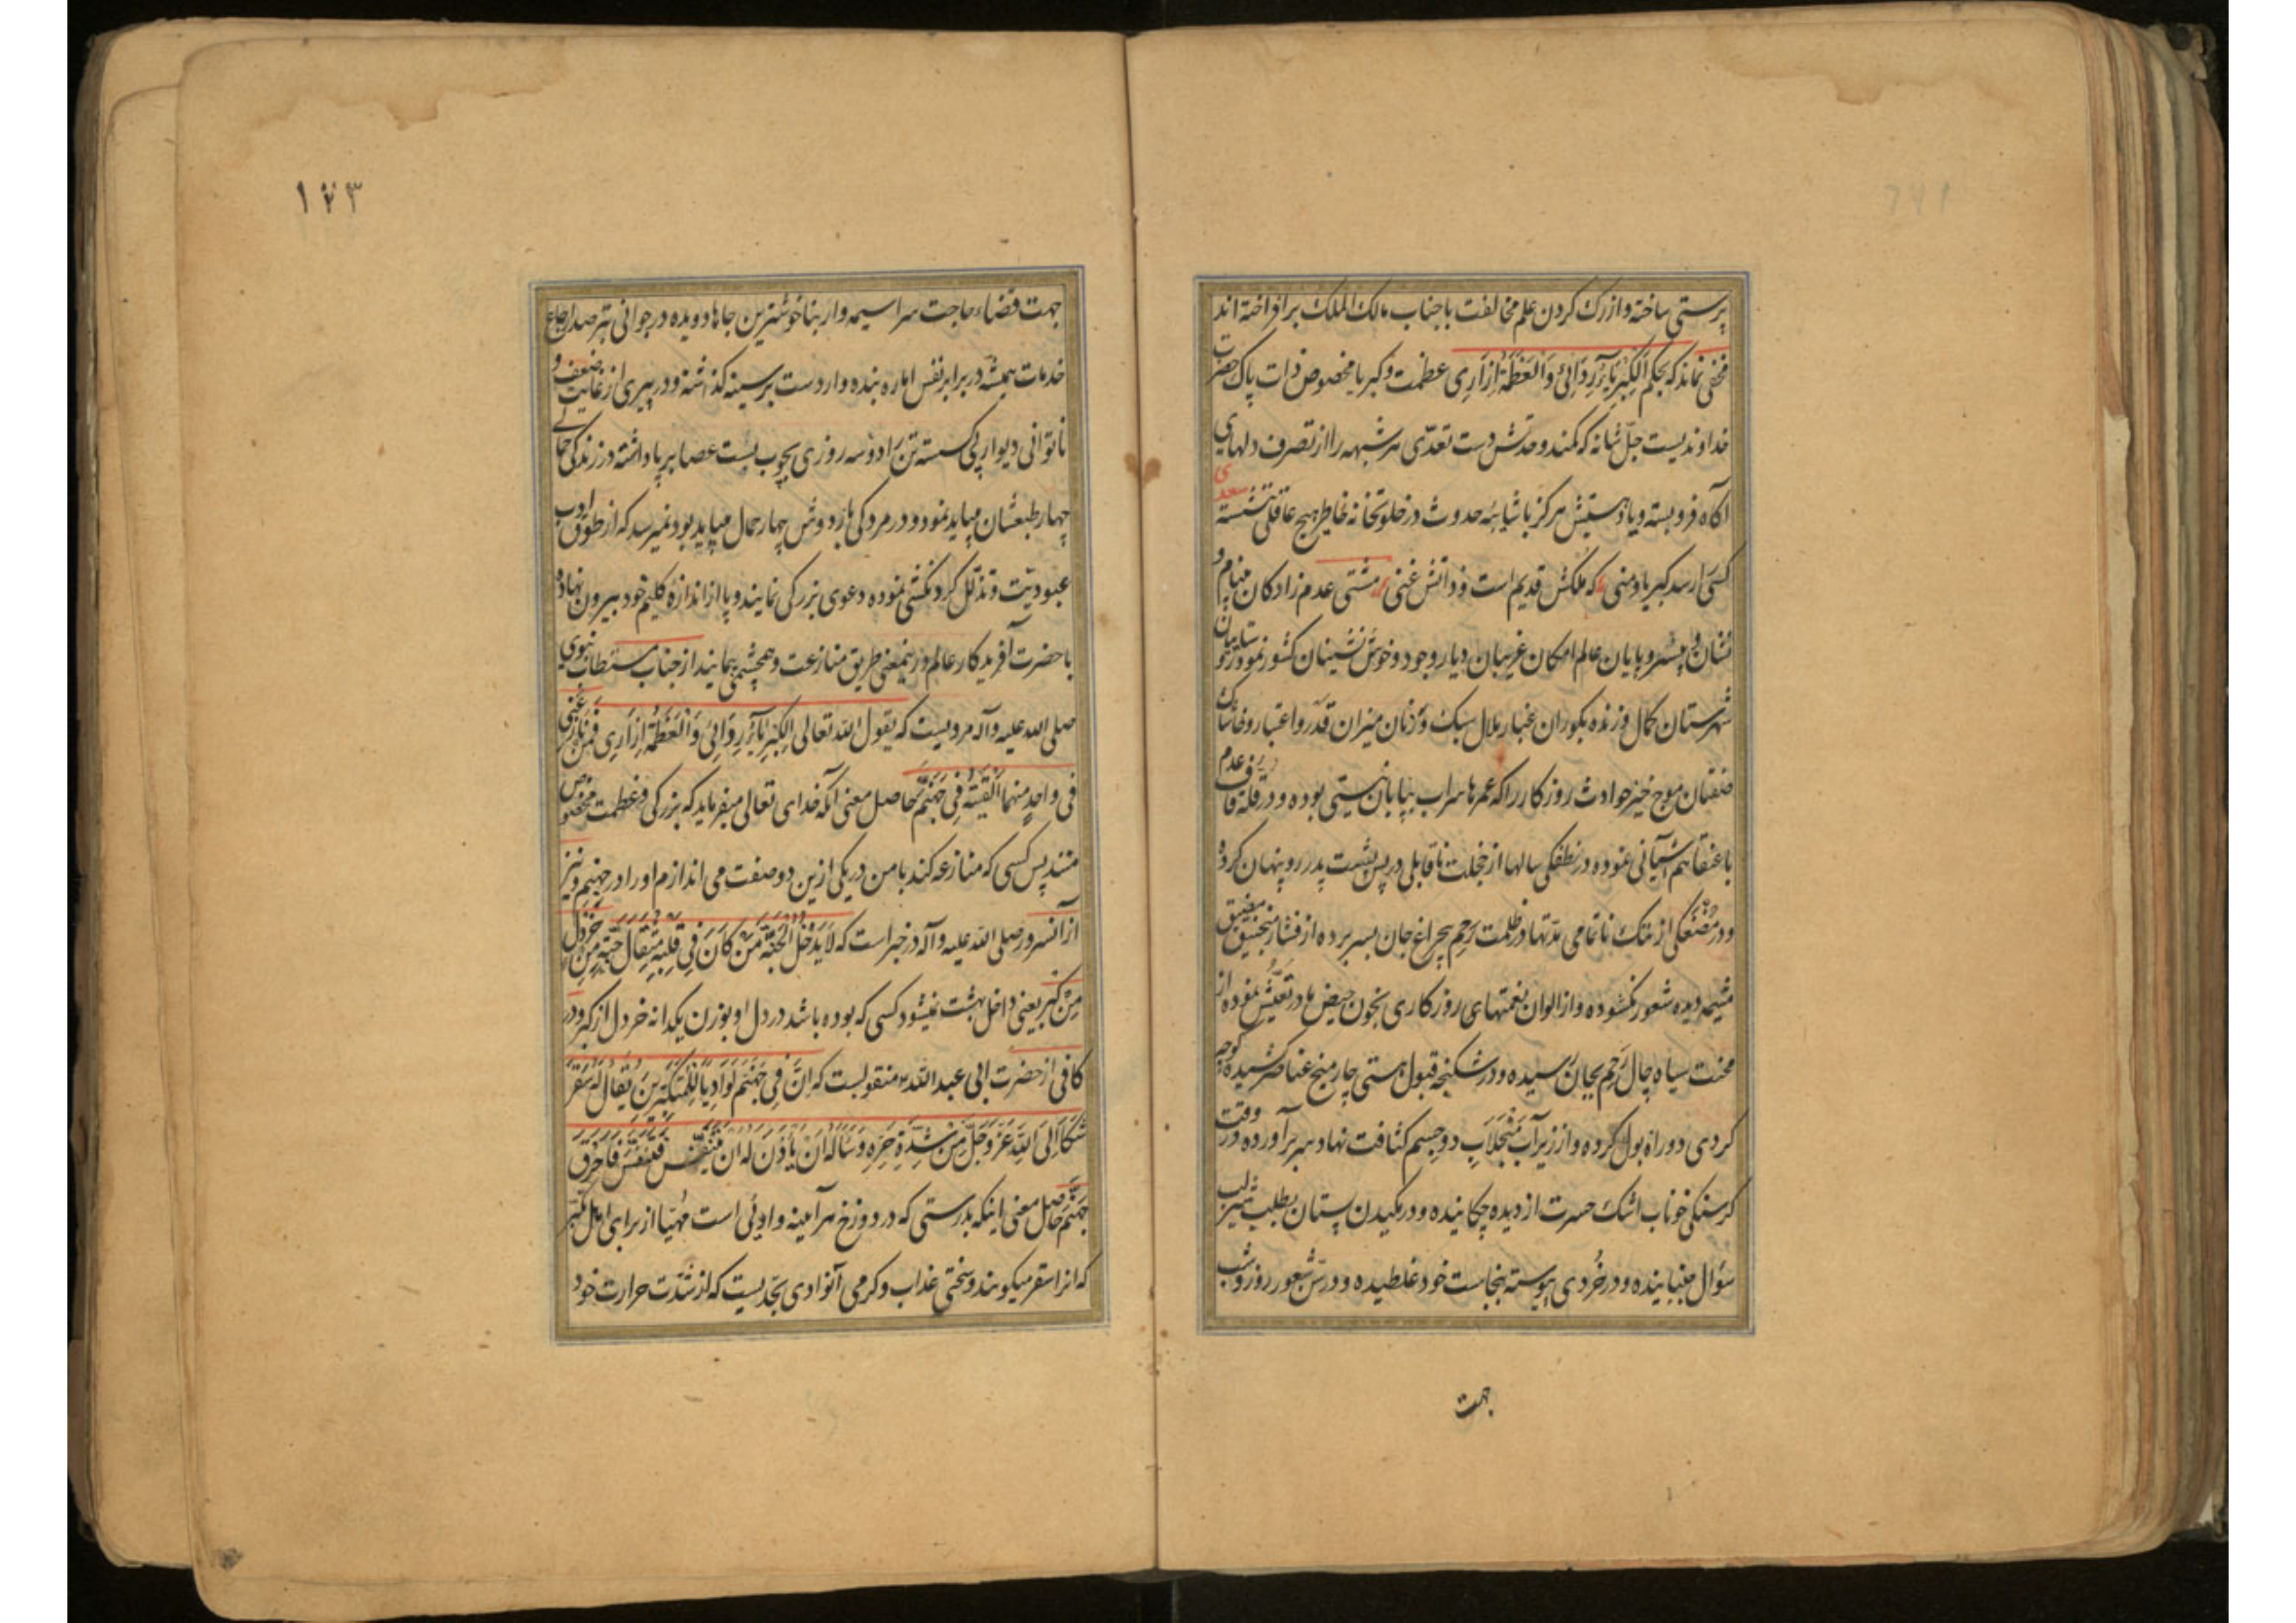 پرستی ساخته و از رک کردن علم مخالفت با جناب مالک الملک برافراخته اند
مخفی نماند که بحکم اَلکِبریَاءُ رِدَائی وَالعَظَمَةُ اِزَارِی عظمت و کبریا مخصوص ذات پاک حضرت
خداوندیست جلّ شانه که کمند وحدتش دست تعدّی هر شبهه را از تصرف دلهای
آگاه فرو بسته و یاد هستیش هرگز با شایبهٔ حدوث در خلوتخانه خاطر هیچ عاقلی ننشسته
سعدی
کسی را رسد کبریا و منی که ملکش قدیم است و ذاتش غنی مشتی عدم زادگان بینام و
نشان و بیسر و پایان عالم امکان غریبان دیار وجود و خوش نشینان کشور نمود
شهرستان کمال و زنده بگوران غبار ملال سبک وزنان میزان قدر و اعتبار و خاشاک
صفتان موج خیز حوادث روزگار را که عمرها سراب بیابان نیستی بوده و در قلهٔ قاف عدم
با عنقا هم آشیانی نموده در نطفگی سالها از خجلت ناقابلی در پس پشت پدر رو پنهان کرده
و در مُضغگی از ننگ ناتمامی مدّتها در ظلمت رَحِم بیچراغ جان بسر برده از فشار منجنیق مضیق
مشیمه دیده شعور نگشوده و از الوان نعمتهای روزگاری بخون حیض مادر تعیّش نموده از
محنت سیاه چال رَحِم بجان رسیده و در شکنجه قبول هستی چار میخ عناصر کشیده کوچه
گردی دو راه بول کرده و از زیر آب مَنجلاب دو جسم کثافت نهاد سر برآورده در وقت
گرسنگی خوناب اشک حسرت از دیده چکانیده و در مکیدن پستان بطلب شیر لب
سؤال جنبانیده و در خُردی پیوسته بنجاست خود غلطیده و در سنّ شعور روز و شب
جهت
۱۷۳
جهت قضاء حاجت سراسیمه وار بناخوشترین جاها دویده در جوانی بترصد ارجاع
خدمات همیشه در برابر نفس اماره بنده وار دست بر سینه گذاشته و در پیری از غایت ضعف و
ناتوانی دیوار پی گسسته تن را دو سه روزی بچوب بست عصا برپا داشته در زندگی حمالی
چهار طبعشان میباید نمود و در مردگی بار دوش چهار حمال میباید بود نمیرسد که از طوق ادب
عبودیّت و تذلّل گردنکشی نموده دعوی بزرگی نمایند و پا از اندازهٔ گلیم خود بیرون نهاده
با حضرت آفریدگار عالم درینمعنی طریق منازعت و همچشمی پیمایند از جناب مستطاب نبوی
صلی الله علیه و آله مرویست که یقول الله تعالی اَلکِبریَاءُ رِدَائی وَالعَظَمَةُ اِزَارِی فَمَن نَازَعَنِی
فی واحِدٍ مِنهما اَلقَیتُه فِی جَهَنَّم حاصل معنی آنکه خدای تعالی میفرماید که بزرگی و عظمت مخصوص
منند پس کسی که منازعه کند با من در یکی ازین دو صفت می اندازم او را در جهنم و نیز
از آنسرور صلی الله علیه و آله در خبر است که لَا یَدخُلُ الجَنَّةَ مَن کَانَ فِی قَلبِهِ مِثقَالُ حَبَّةٍ مِن خَردَلٍ
مِن کِبرٍ یعنی داخل بهشت نمیشود کسی که بوده باشد در دل او بوزن یکدانه خردل از کبر و در
کافی از حضرت ابی عبدالله منقولست که اِنَّ فِی جَهَنَّم لَوَادِیًا لِلمُتَکَبِّرِینَ یُقَالُ لَهُ سَقَر
شَکَا اِلَی اللهِ عَزَّ وَجَلَّ مِن شِدَّةِ حَرِّهِ وَسَأَلَهُ اَن یَأذَنَ لَهُ اَن یَتَنَفَّسَ فَتَنَفَّسَ فَاَحرَقَ
جَهَنَّم حاصل معنی اینکه بدرستی که در دوزخ هر آینه وادئی است مُهیّا از برای اهل تکبر
که انرا سقر میگویند و سختی عذاب و گرمی آنوادی بحدّیست که از شدّت حرارت خود